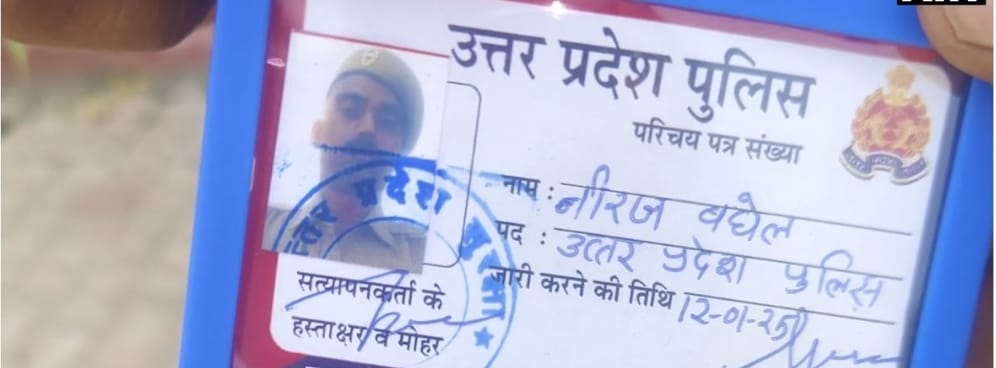 उत्तर प्रदेश पुलिस
परिचय पत्र संख्या
नाम : नीरज बघेल
पद : उत्तर प्रदेश पुलिस
जारी करने की तिथि 12-01-25
सत्यापनकर्ता के
हस्ताक्षर व मोहर
उत्तर प्रदेश पुलिस